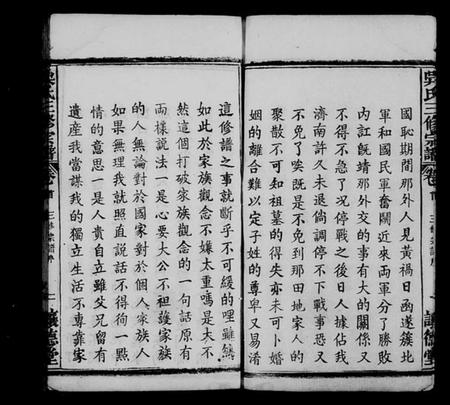 吳氏三修宗譜
國恥期間那外人見黃禍日亟遂簇北
軍和國民軍奮鬬近來兩軍分了勝敗
內訌既靖那外交的事有大的關係又
不得不急了況停戰之後日人據佔我
濟南許久未退倘調停不下戰事恐又
不免了唉既是不免到那田地家人的
聚散不可知祖墓的得失亦未可卜婚
姻的離合難以定子姓的尊卑又易淆
這修譜之事就斷乎不可緩的哩雖然
如此於家族觀念不嫌太重嗎是大不
然這個打破家族觀念的一句話原有
兩樣說法一是心要大公不祖護家族
的人無論對於國家對於個人家族人
如果無理我就照直說話不得徇一點
情的意思一是人貴自立雖父兄留有
遺產我當謀我的獨立生活不專靠家
吳氏三修宗譜
讓德堂